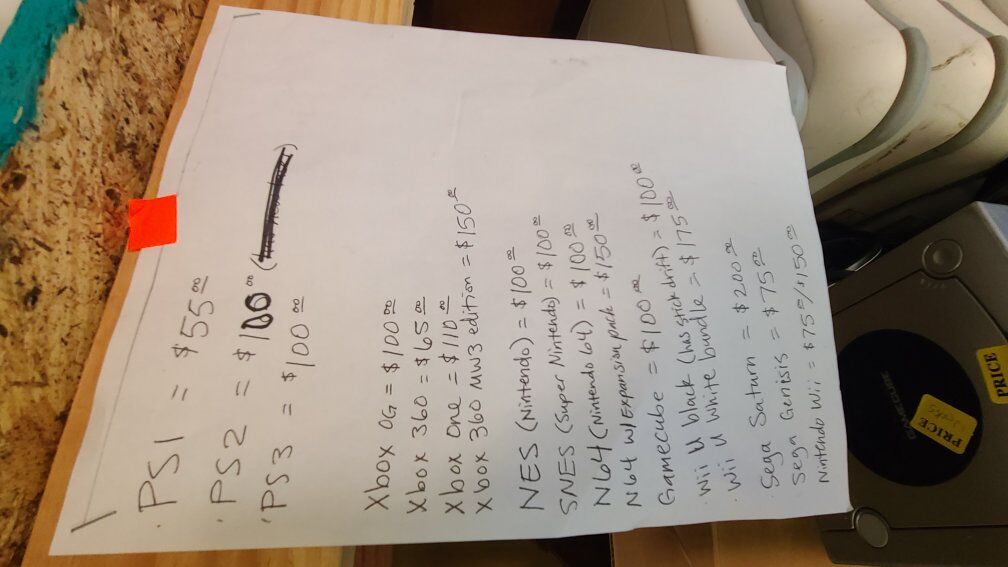 · PS1 = $55.00
· PS2 = $100.00 (
· PS3 = $100.00
Xbox OG = $100.00
Xbox 360 = $65.00
Xbox One = $110.00
Xbox 360 MW3 edition = $150.00
NES (Nintendo) = $100.00
SNES (Super Nintendo) = $100.00
N64 (Nintendo 64) = $100.00
N64 w/ Expansion pack = $150.00
Gamecube = $100.00
· Wii U black (has stick drift) = $100.00
· Wii U White bundle = $175.00
· Sega Saturn = $200.00
Sega Genisis = $75.00
Nintendo Wii = $75.00/$150.00
GAMECUBE
PRICE
PRICE